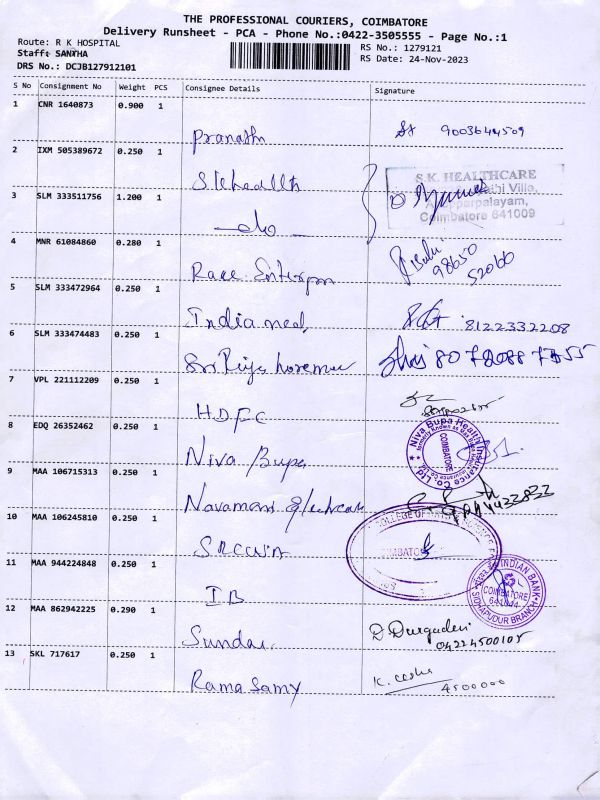 THE PROFESSIONAL COURIERS, COIMBATORE
Delivery Runsheet - PCA - Phone No.:0422-3505555 - Page No.:1
Route: R K HOSPITAL
Staff: SANTHA
DRS No.: DCJB127912101
RS No.: 1279121
RS Date: 24-Nov-2023
S No Consignment No Weight PCS Consignee Details Signature
1 CNR 1640873 0.900 1
Pranath 9003644509
2 IXM 505389672 0.250 1
S.K. HEALTHCARE
Villa,
3 SLM 333511756 1.200 1
Coimbatore 641009
do
4 MNR 61084860 0.280 1
Race Enterprn 98650
52060
5 SLM 333472964 0.250 1
India med 8122332208
6 SLM 333474483 0.250 1
Sri Priya
7 VPL 221112209 0.250 1
HDFC
8 EDQ 26352462 0.250 1
Niva Bupa Health Insurance Co Ltd
COIMBATORE
Niva Bupa
9 MAA 106715313 0.250 1
Navamani
10 MAA 106245810 0.250 1
COLLEGE OF
11 MAA 944224848 0.250 1
IB
INDIAN BANK
COIMBATORE
SIDHAPUDUR BRANCH
12 MAA 862942225 0.290 1
Sundar D Durgadevi
04224500105
13 SKL 717617 0.250 1
Rama Samy 4500000